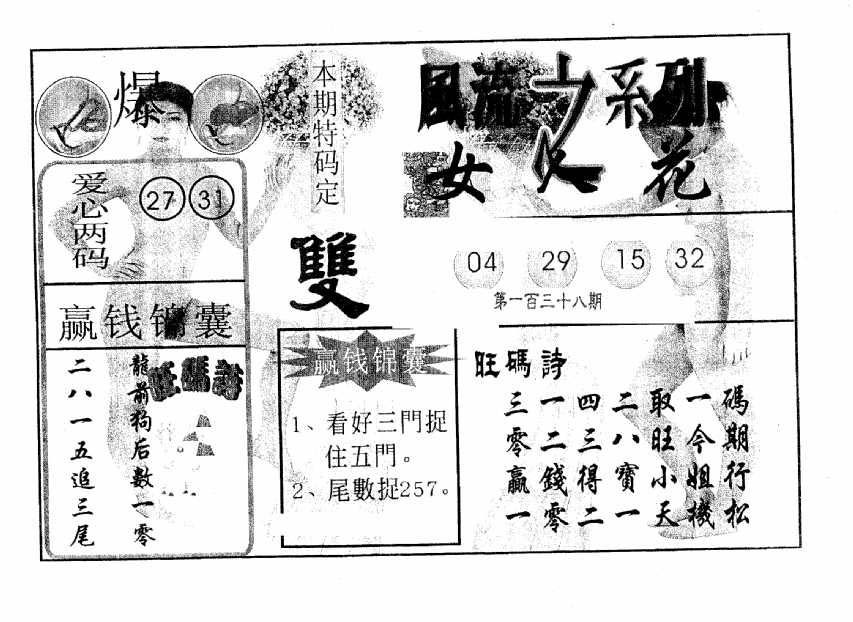 爆
爱心两码
27 31
赢钱锦囊
旺碼詩
龍前狗后數一零
二八一五追三尾
本期特码定
雙
赢钱锦囊
1、看好三門捉
住五門。
2、尾數捉257。
風流之系列
女人花
04 29 15 32
第一百三十八期
旺碼詩
碼期行松
一今姐機
取旺小天
二八寶一
四三得二
一二錢零
三零贏一